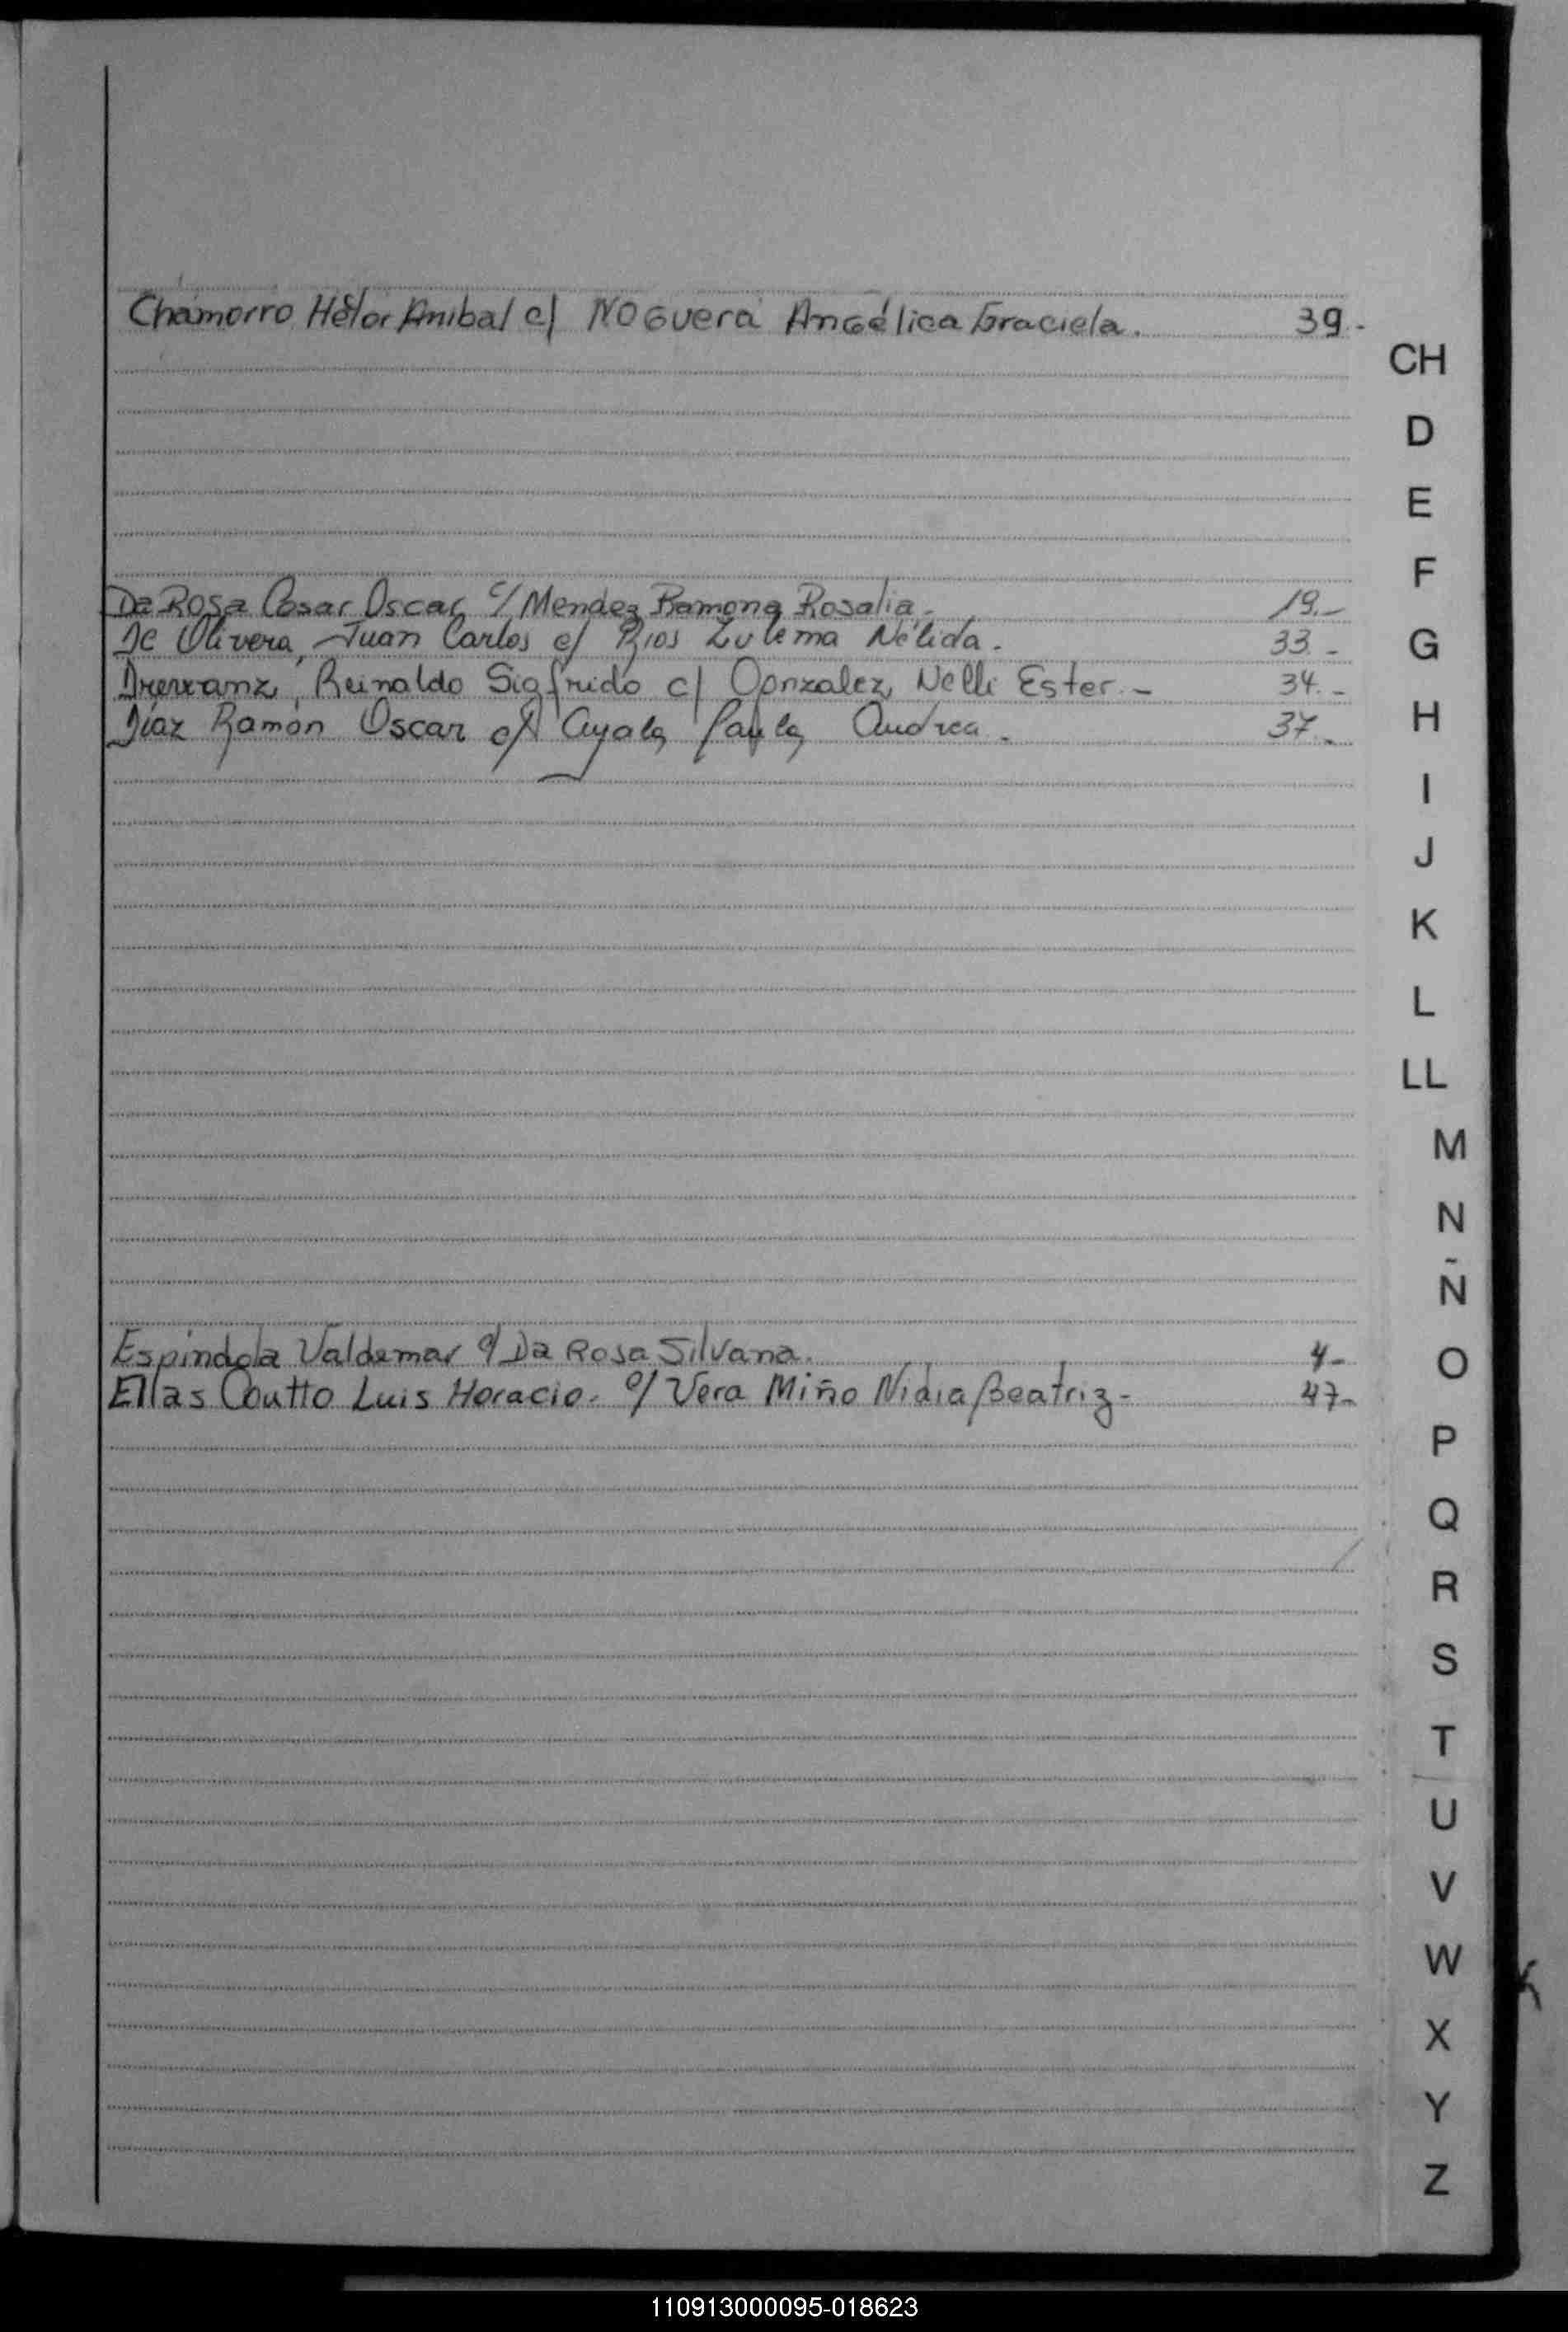 Chamorro Héctor Anibal c/ Noguera Angélica Graciela. 39.-
CH
D
E
F
Da Rosa Cesar Oscar c/ Mendez Ramona Rosalia.- 19.-
De Olivera, Juan Carlos c/ Rios Zulema Nélida. 33.-
G
Reinaldo Sigfrido c/ Gonzalez, Nelli Ester.- 34.-
Díaz Ramón Oscar c/ Ayala Paula Andrea. 37.-
H
I
J
K
L
LL
M
N
Ñ
Espindola Valdemar c/ Da Rosa Silvana. 4-
O
Elías Coutto Luis Horacio. c/ Vera Miño Nidia Beatriz- 47-
P
Q
R
S
T
U
V
W
X
Y
Z
110913000095-018623